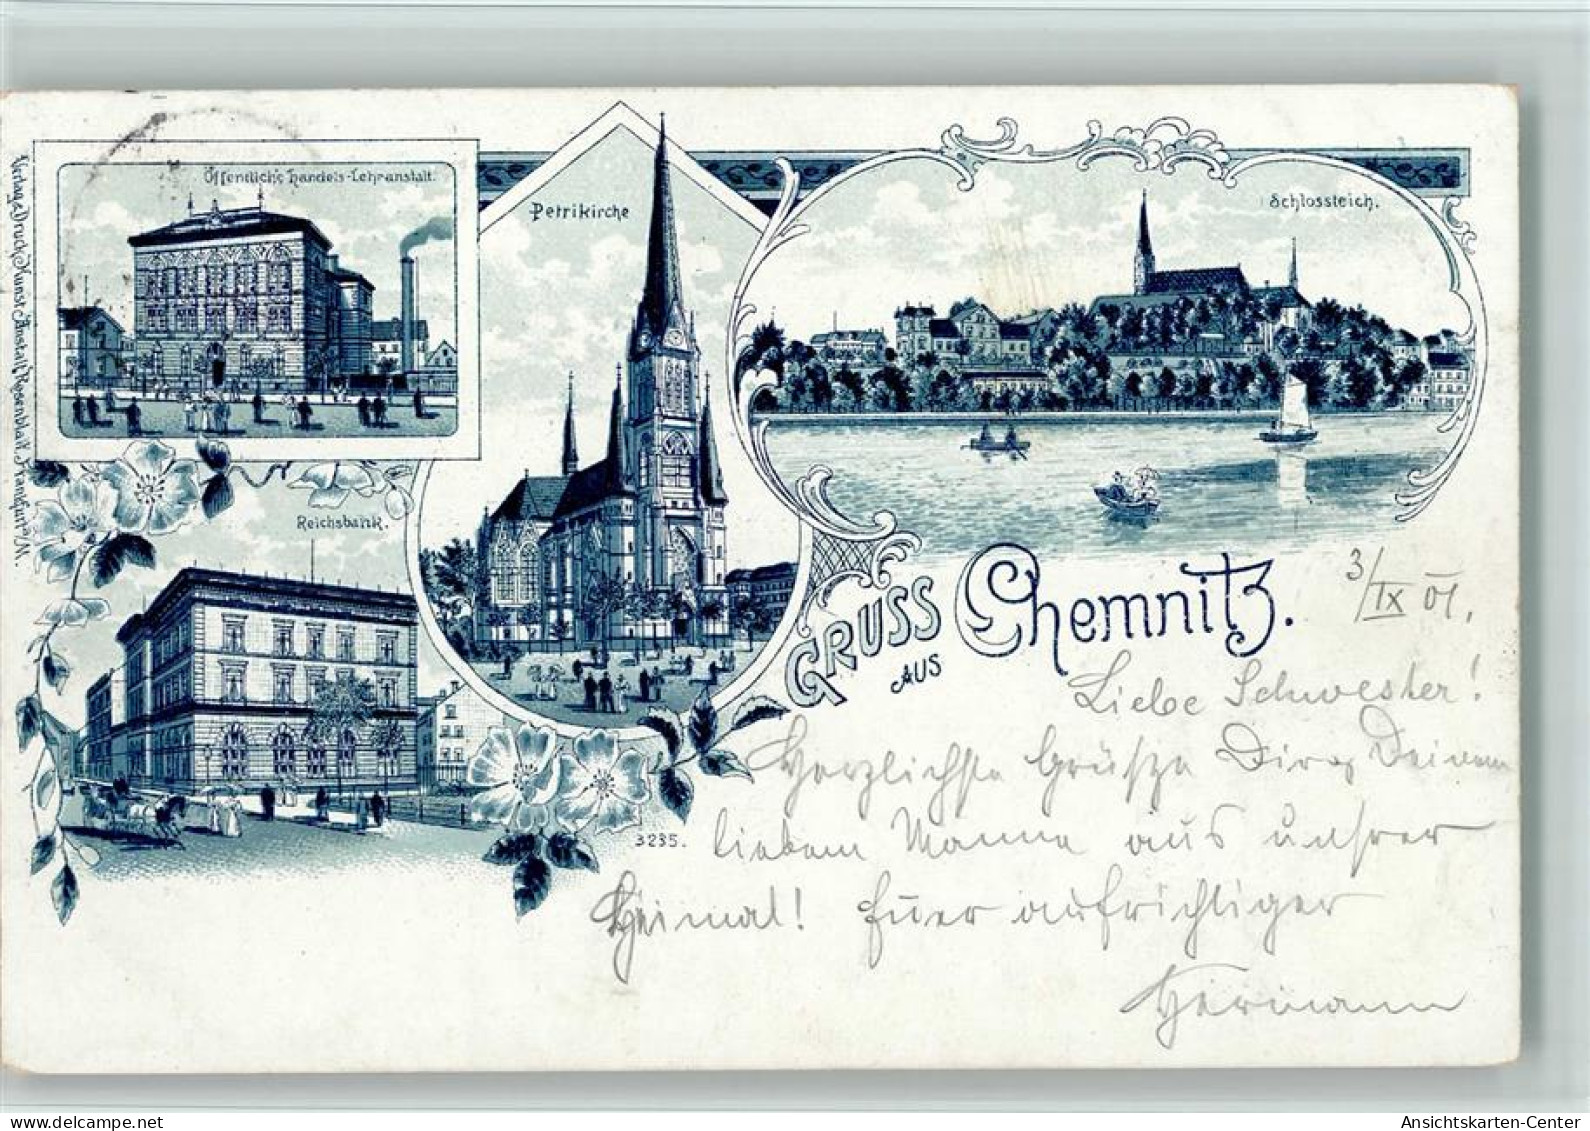 Öffentliche Handels-Lehranstalt.
Petrikirche
Schlossteich.
Verlag & Druck Kunst-Anstalt Rosenblatt, Frankfurt a/M.
Reichsbank.
GRUSS
AUS Chemnitz.
3/IX 01.
Liebe Schwester!
Herzlichste Grüße Dir, Deinem
lieben Manne aus unsrer
Heimat! Euer aufrichtiger
Hermann
3235.
delcampe.net
Ansichtskarten-Center